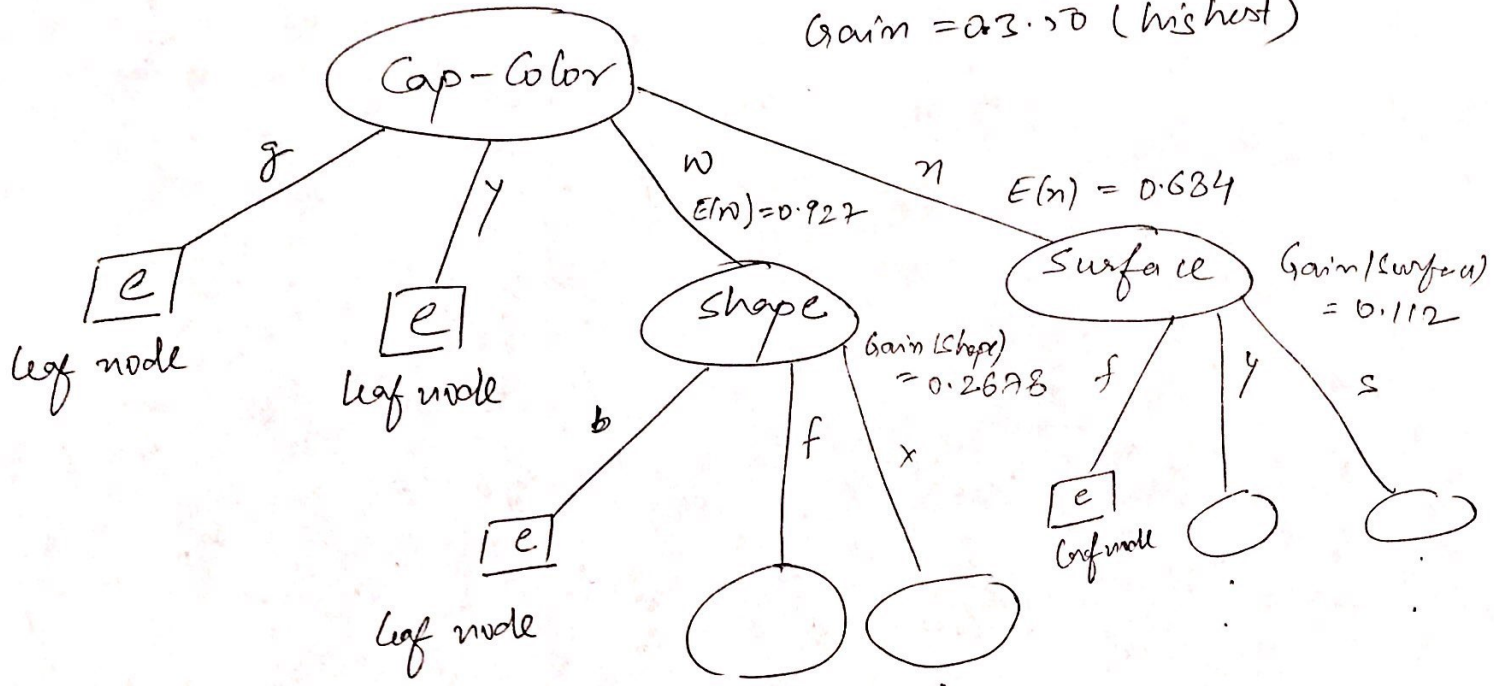 Gain = 0.3.50 (highest)
Cap-Color
g
y
w
n
E(w)=0.927
E(n) = 0.684
e
leaf node
e
leaf node
Shape
Gain(Shape)
= 0.2678
Surface
Gain(Surface)
= 0.112
b
f
x
f
y
s
e
leaf node
e
leaf node